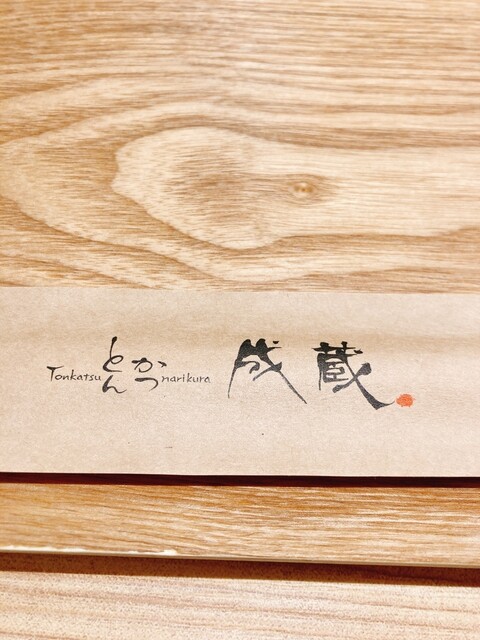 Tonkatsu とんかつ narikura 成蔵